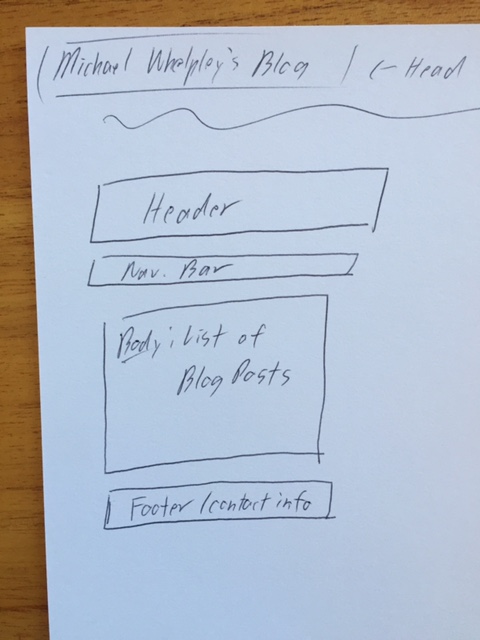 Michael Whelpley's Blog ← Head
Header
Nav. Bar
Body: List of
Blog Posts
Footer / contact info